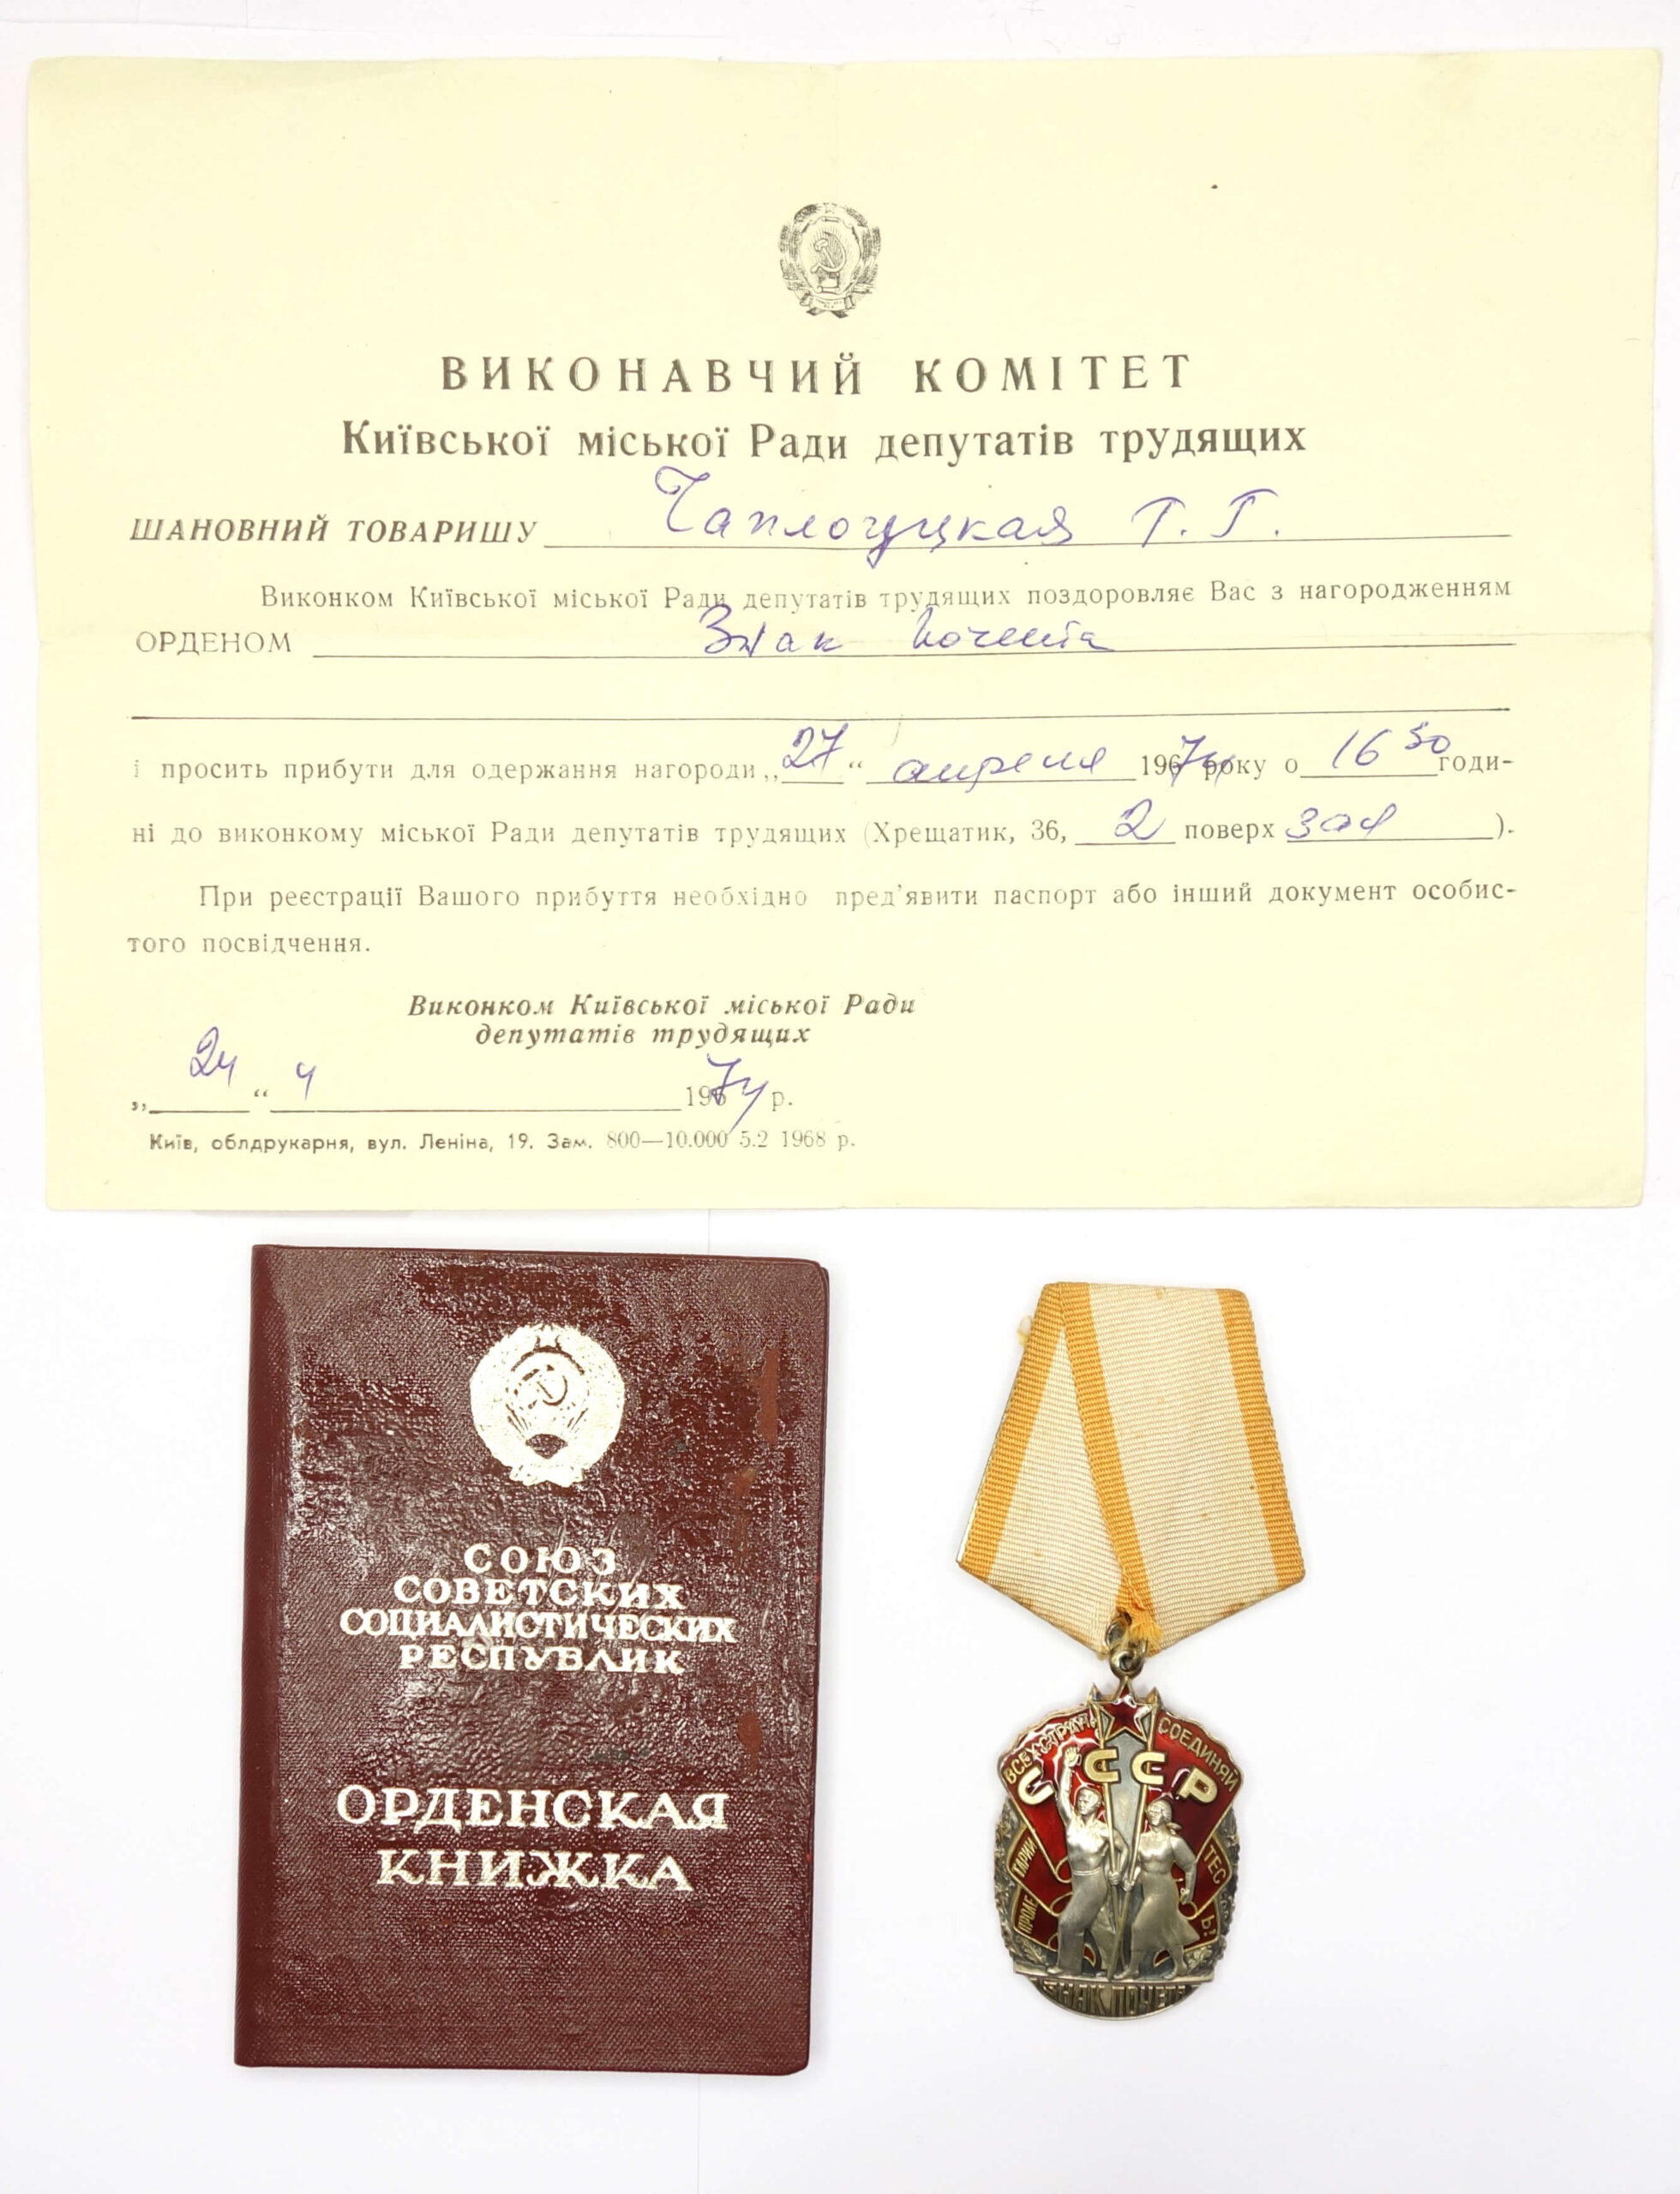 ВИКОНАВЧИЙ КОМІТЕТ
Київської міської Ради депутатів трудящих
ШАНОВНИЙ ТОВАРИШУ Чаплоуцкая Т. Г.
Виконком Київської міської Ради депутатів трудящих поздоровляє Вас з нагородженням
ОРДЕНОМ Знак Почета
і просить прибути для одержання нагороди „27“ апреля 1974 року о 16 30 годи-
ні до виконкому міської Ради депутатів трудящих (Хрещатик, 36, 2 поверх зал ).
При реєстрації Вашого прибуття необхідно пред'явити паспорт або інший документ особис-
того посвідчення.
Виконком Київської міської Ради
депутатів трудящих
„24“ 4 1974 р.
Київ, облдрукарня, вул. Леніна, 19. Зам. 800—10.000 5.2 1968 р.
СОЮЗ
СОВЕТСКИХ
СОЦИАЛИСТИЧЕСКИХ
РЕСПУБЛИК
ОРДЕНСКАЯ
КНИЖКА
ПРОЛЕТАРИИ ВСЕХ СТРАН СОЕДИНЯЙТЕСЬ!
СССР
ЗНАК ПОЧЕТА